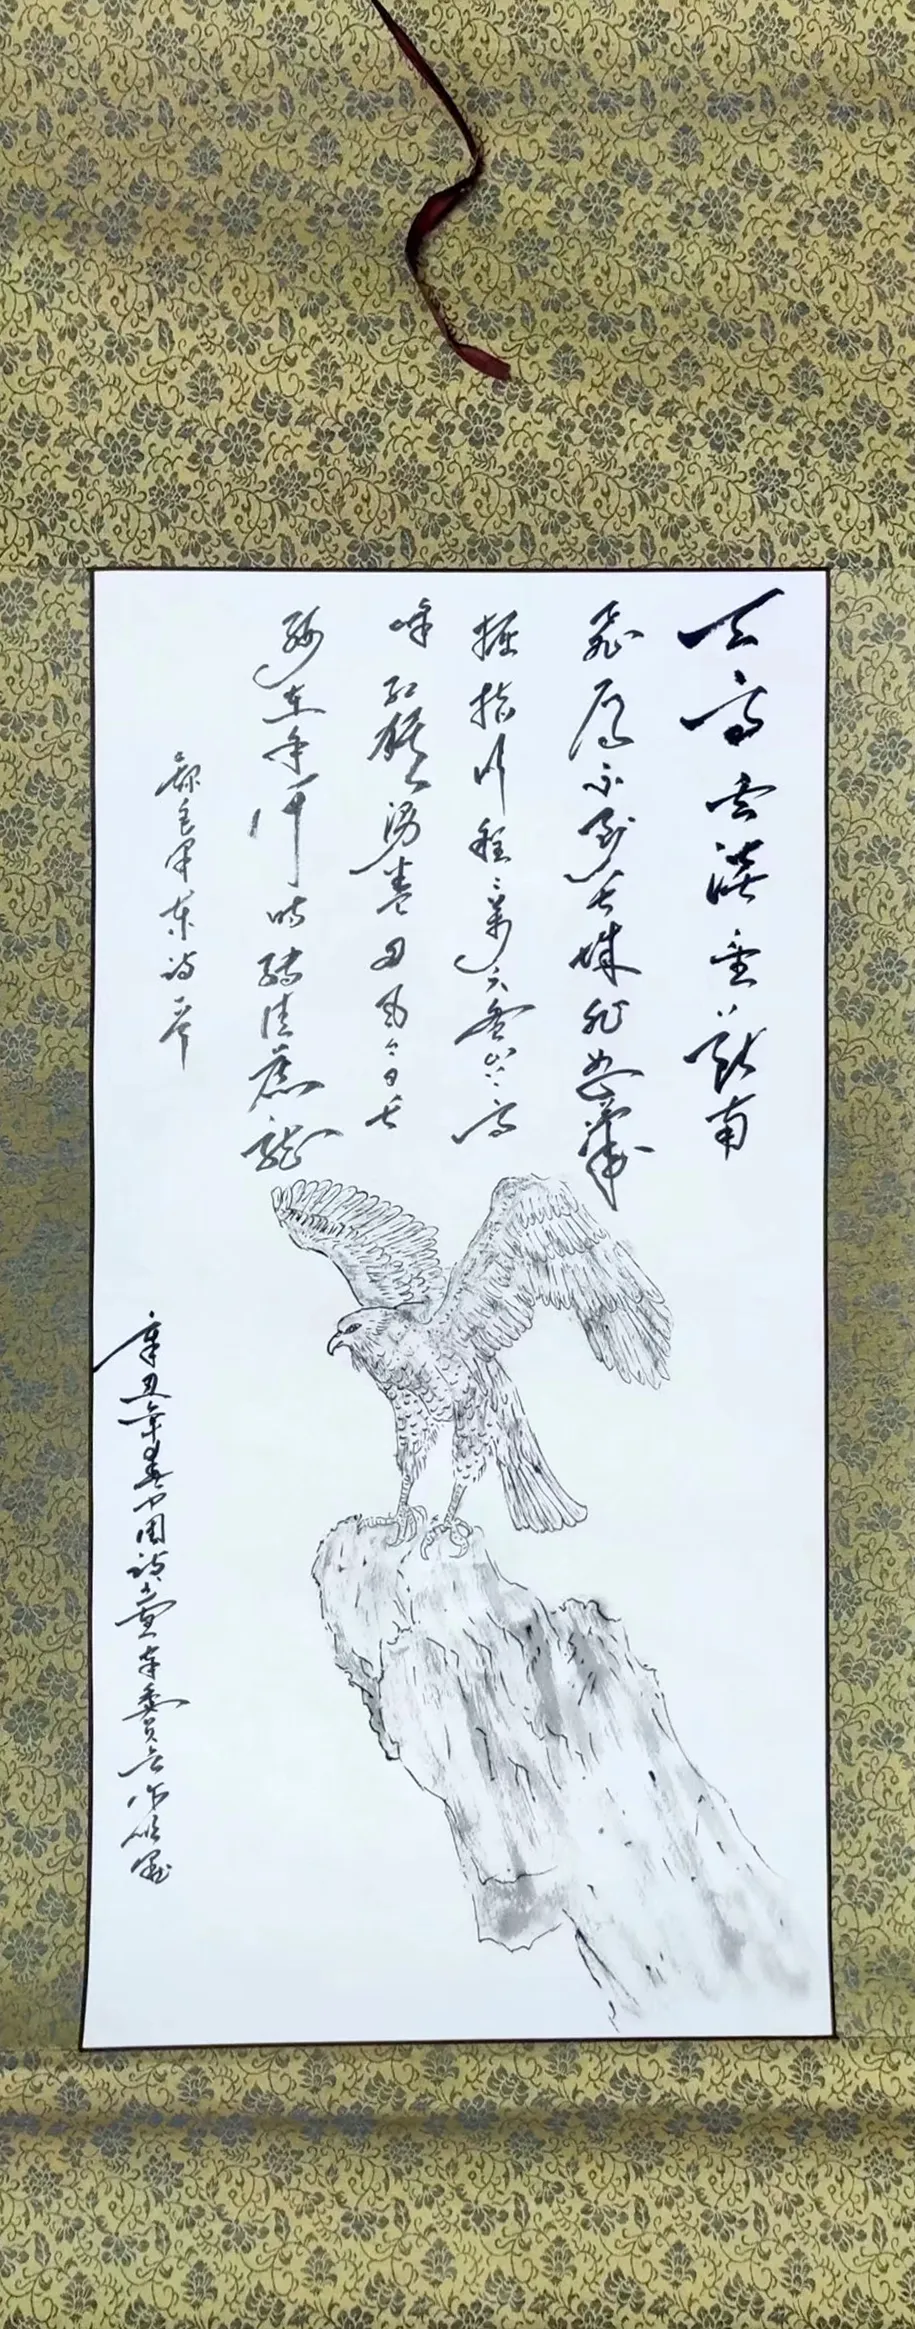 天高云淡望断南
飞雁不到长城非好汉
屈指行程二万六盘山上高
峰红旗漫卷西风今日长
缨在手何时缚住苍龙
录毛泽东诗
辛丑年春中国诗书画委员会